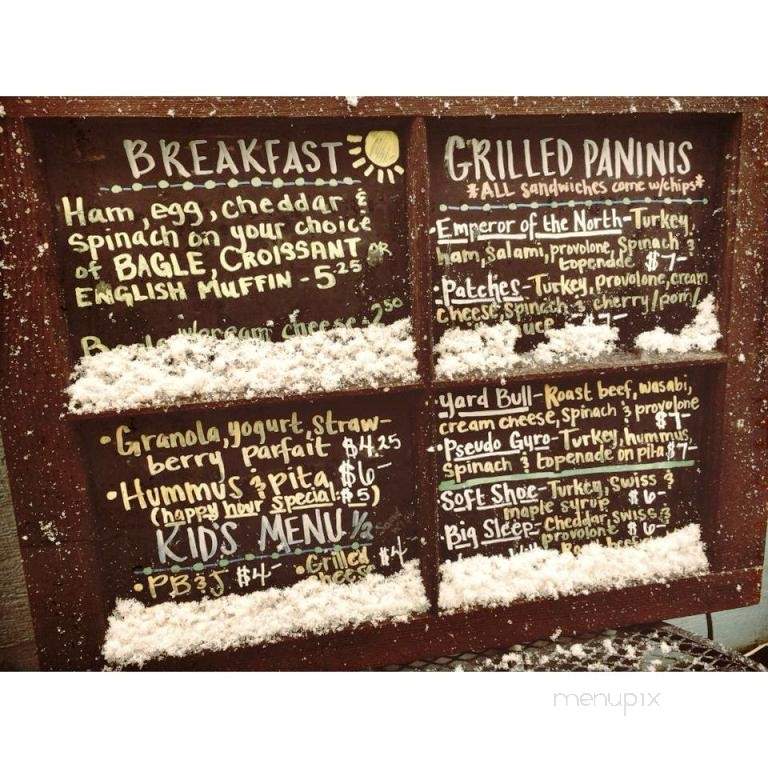 BREAKFAST
Ham, egg, cheddar &
Spinach on your choice
of BAGLE, CROISSANT OR
ENGLISH MUFFIN - 5.25
cream cheese - 2.50
Granola, yogurt, straw-
berry parfait $4.25
Hummus & pita $6-
(happy hour special: $5)
KID'S MENU 1/2
PB & J $4-
Grilled $4
cheese
GRILLED PANINIS
*ALL sandwiches come w/chips*
Emperor of the North - Turkey,
ham, salami, provolone, Spinach &
topenade $7-
Patches - Turkey, provolone, cream
cheese, spinach & cherry/pom/
$7-
Yard Bull - Roast beef, wasabi,
cream cheese, spinach & provolone
$7-
Pseudo Gyro - Turkey, hummus,
Spinach & topenade on pita $7-
Soft Shoe - Turkey, Swiss &
maple syrup $6-
Big Sleep - Cheddar, swiss &
provolone $6-
Roast beef
menupix